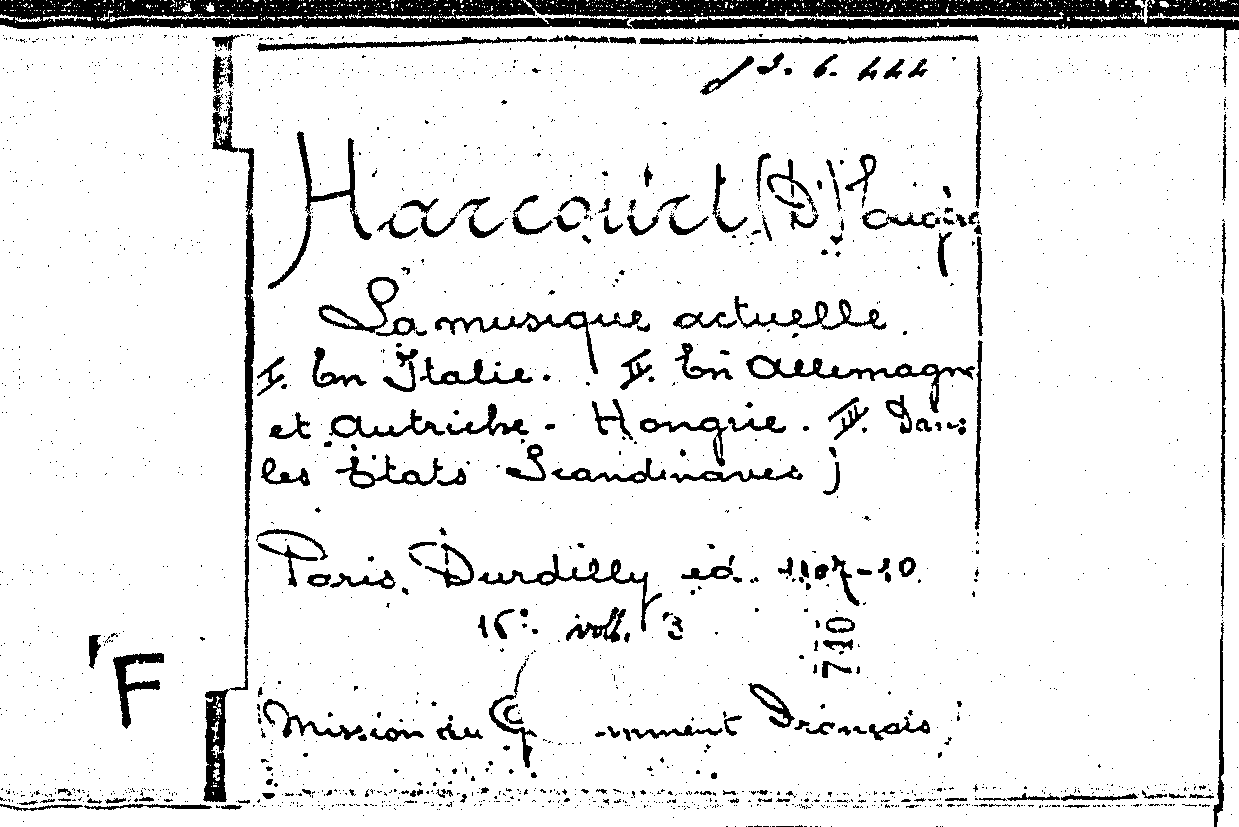 J 3. 6. 444
Harcourt (D') Eugène
La musique actuelle.
I. En Italie. II. En Allemagne
et Autriche - Hongrie. III. Dans
les Etats Scandinaves j
Paris, Durdilly ed. 1907-10
16º. voll. 3
710
F
Mission du G rnment Français